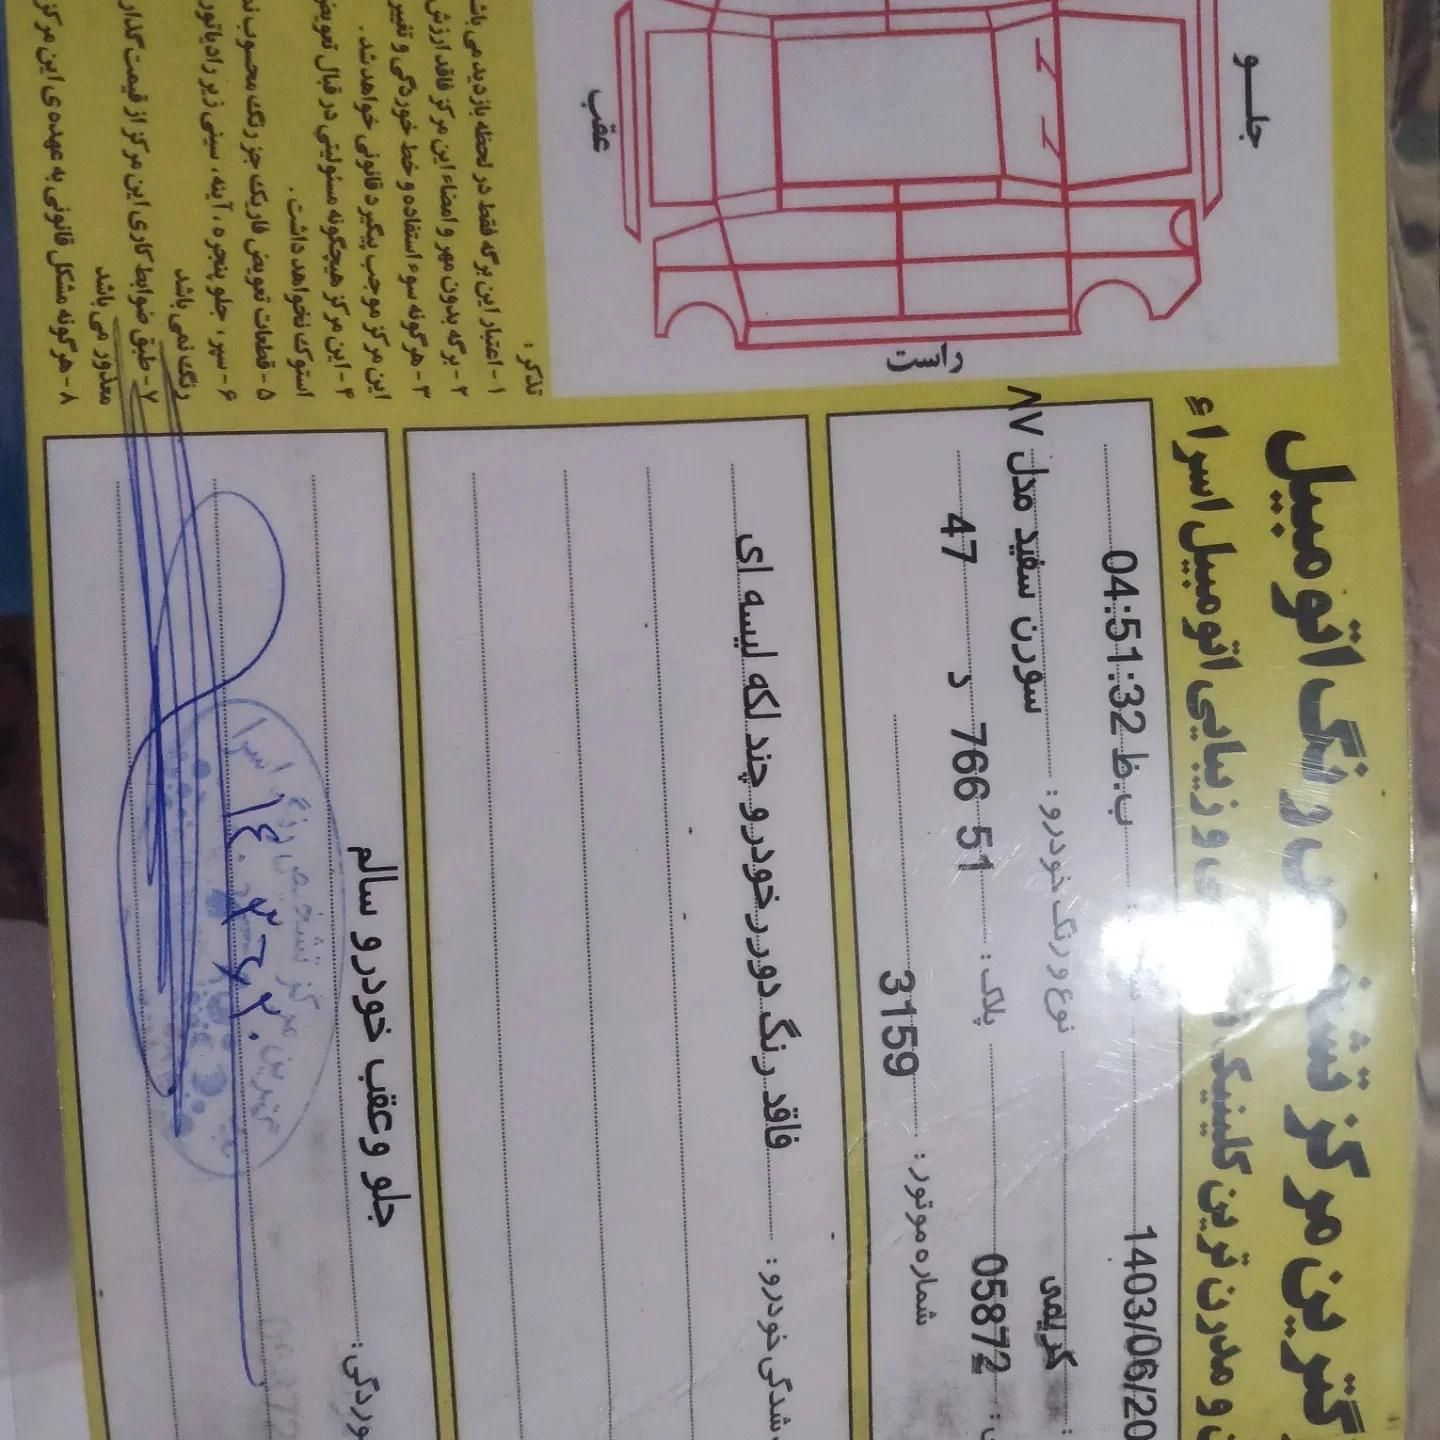 گترین مرکز تشخیص رنگ اتومبیل
و مدرن ترین کلینیک
ی و زیبایی اتومبیل اسراء
1403/06/20
04:51:32 ب.ظ
کریمی
نوع و رنگ خودرو : سورن سفید مدل ۸۷
05872
پلاک : 51 766 د 47
شماره موتور : 3159
شدگی خودرو : فاقد رنگ دور خودرو چند لکه لیسه ای
وردگی : جلو و عقب خودرو سالم
مرکز تشخیص رنگ اسرا
۱٤۰۳٬۶٬۲۰
جلو
عقب
راست
تذکر :
۱- اعتبار این برگه فقط در لحظه بازدید می باشد
۲- برگه بدون مهر و امضاء این مرکز فاقد ارزش
۳- هرگونه سوء استفاده و خط خوردگی و تغییر
این مرکز موجب پیگیرد قانونی خواهد شد .
۴- این مرکز هیچگونه مسئولیتی در قبال تعویض
استوک نخواهد داشت .
۵- قطعات تعویض فابریک جز رنگ محسوب
۶- سپر ، جلو پنجره ، آینه ، سینی زیر رادیاتور
رنگ نمی باشد
۷- طبق ضوابط کاری این مرکز از قیمت گذار
معذور می باشد
۸- هرگونه مشکل قانونی به عهده ی این مرکز